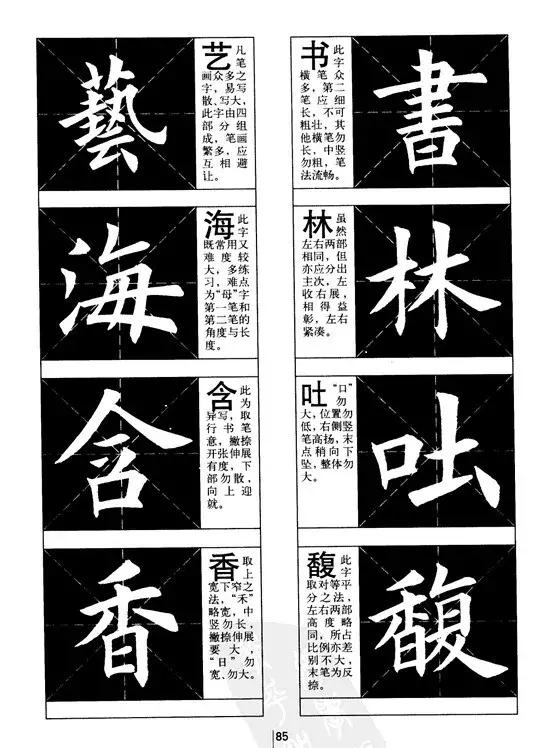 書
书 此字
横笔众
多，第二
笔应细
长，不可
粗壮，其
他横笔勿
长，中竖
勿粗，笔
法流畅。
林
林 虽然
左右两部
相同，但
亦应分出
主次，左
收右展，
相得益
彰，左右
紧凑。
吐
吐 “口”勿
大，位置勿
低，右侧竖
笔高扬，末
点稍向下
坠，整体勿
大。
馥
馥 此字
取对等平
分之法，
左右两部
高度略
同，所占
比例亦差
别不大，
末笔为反
捺。
藝
艺 凡笔
画众多之
字，易写
散、写大，
此字由四
部分组
成，笔画
繁多，应
互相避
让。
海
海 此字
既常用又
难度较
大，多练
习，难点
为“母”字
第一笔和
第二笔的
角度与长
度。
含
含 此为
异写，取
行书笔
意，撇捺
开张伸展
有度，下
部勿散，
向上迎
就。
香
香 取上
宽下窄之
法，“禾”
略宽，中
竖勿长，
撇捺伸展
要大，
“日”勿
宽、勿大。
85